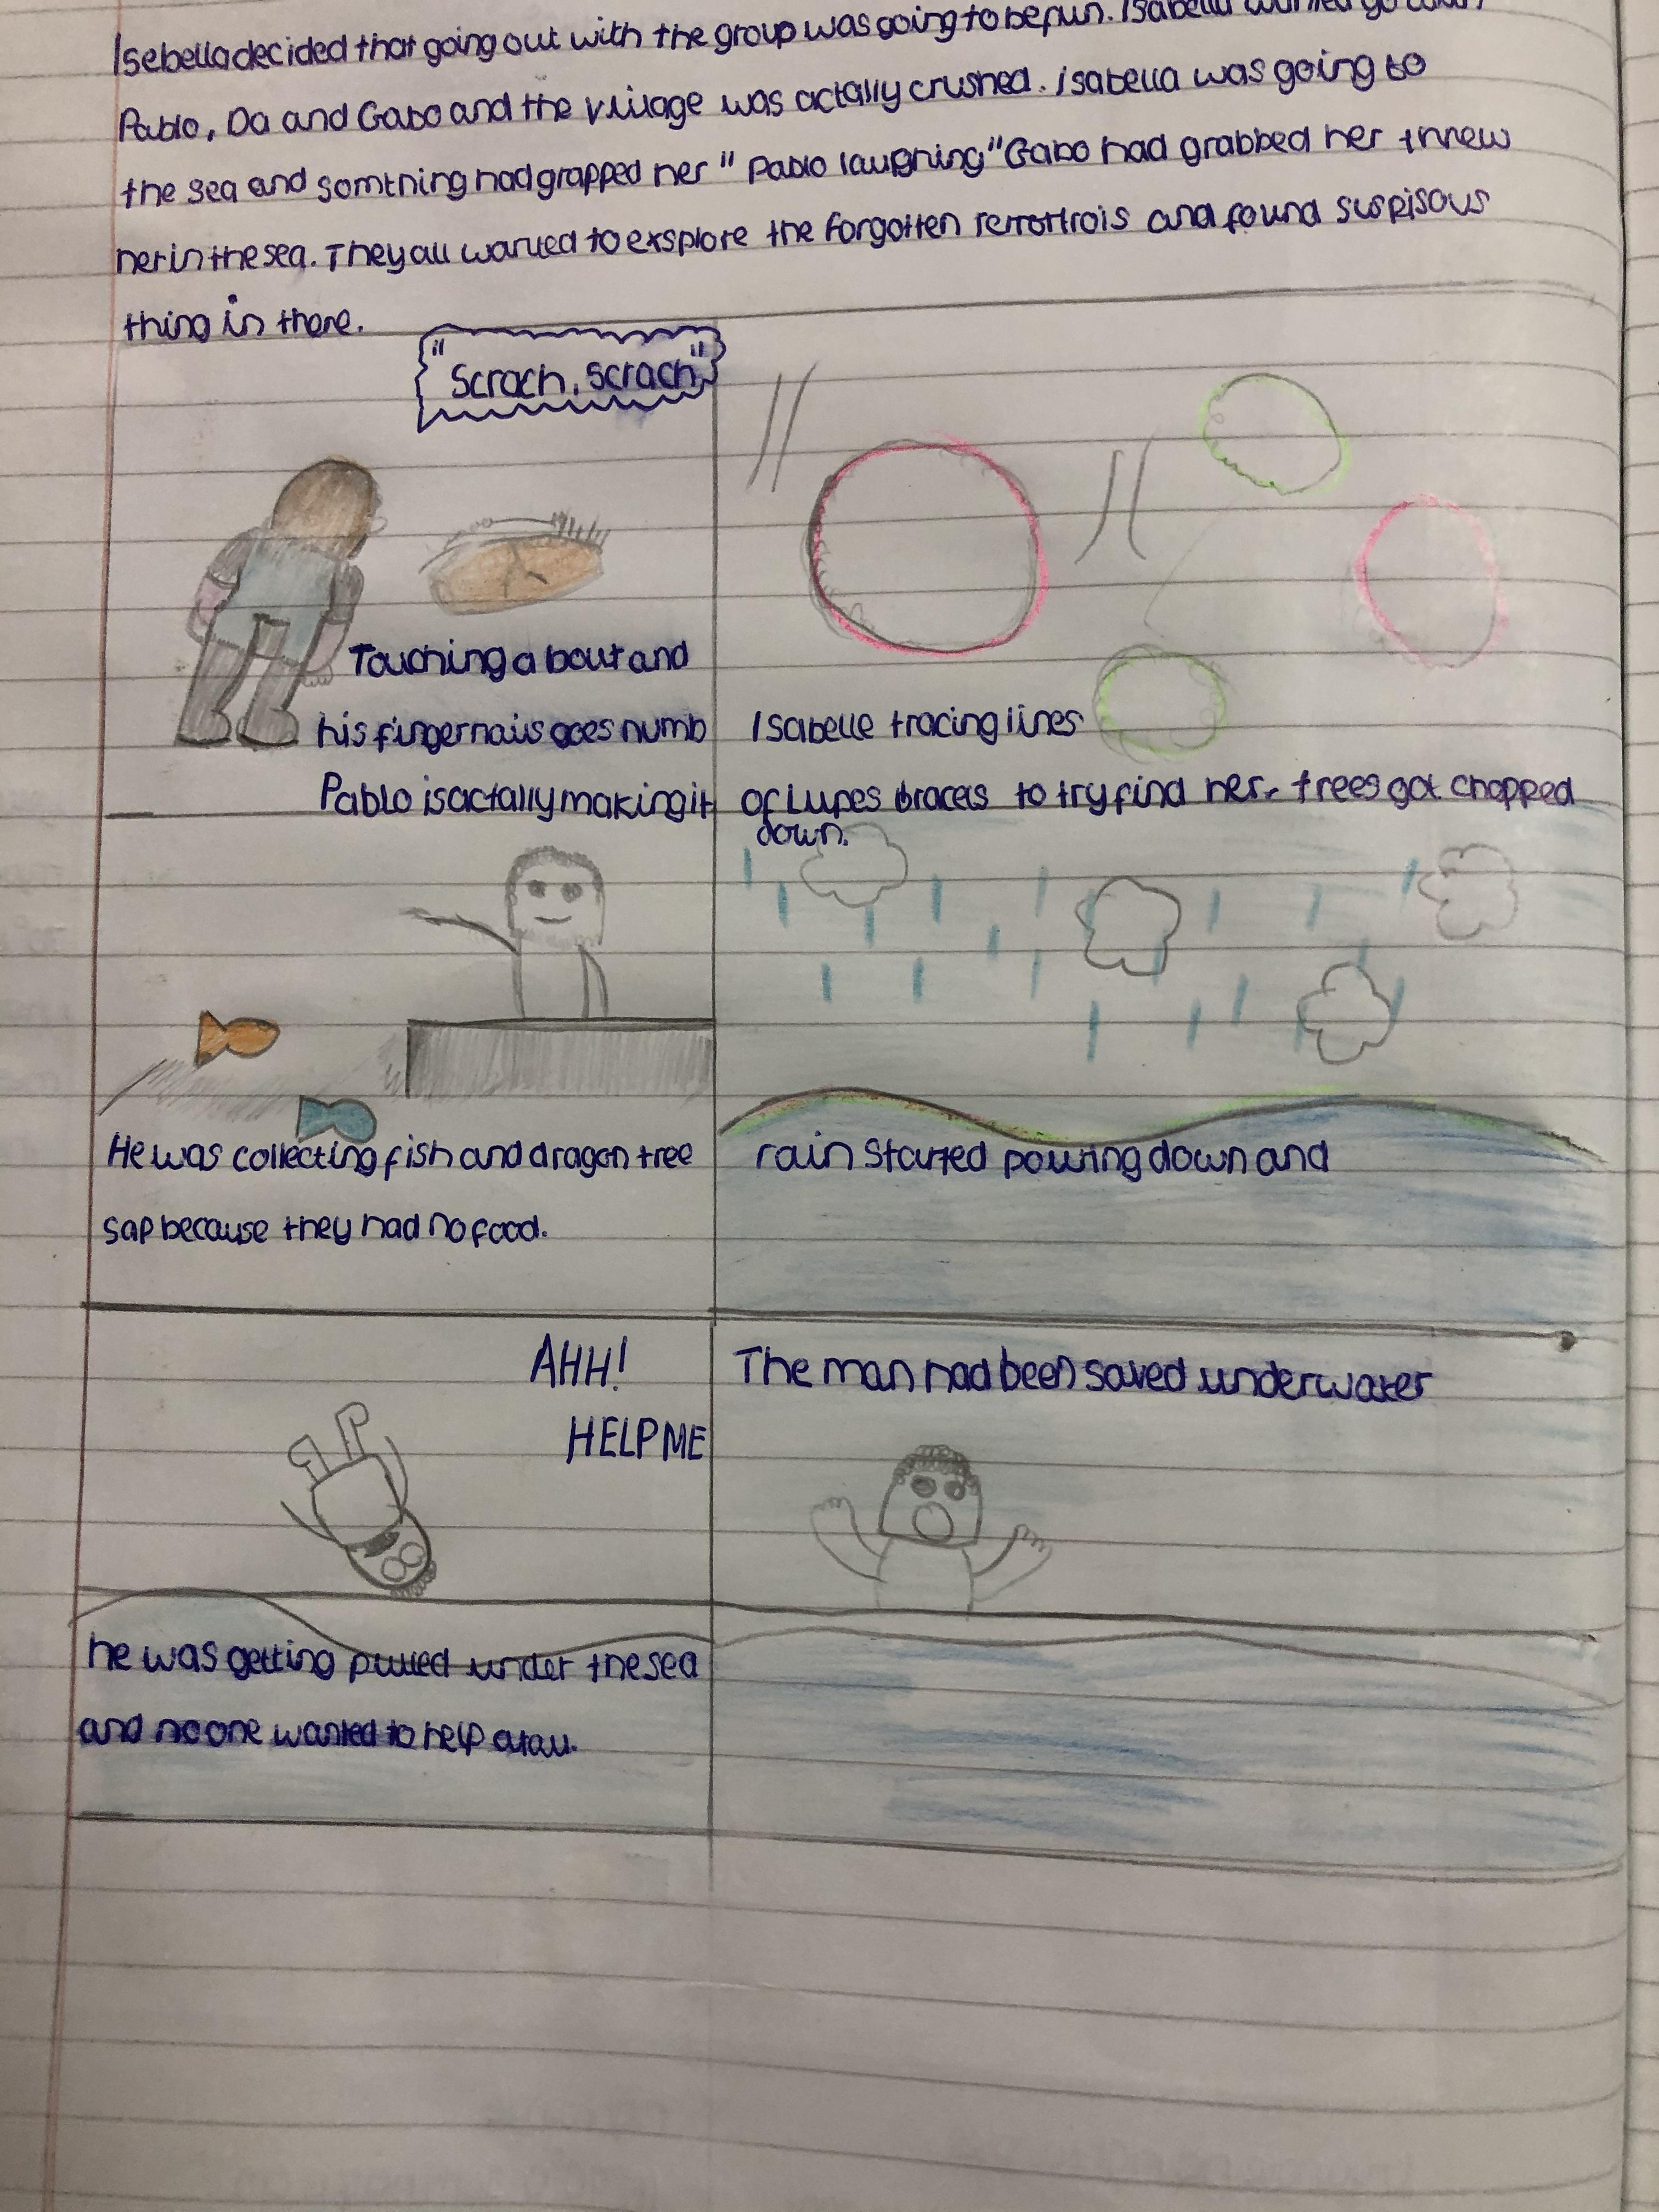 Isebella decided that going out with the group was going to be fun. Isabella wanted go
Pablo, Da and Gabo and the village was actally crushed. Isabella was going to
the sea and somthing had grapped her " Pablo laughing" Gabo had grabbed her threw
her in the sea. They all wanted to exsplore the forgotten and found suspisous
thing in there.
"Scrach, scrach"
Touching a bout and
his fingernails goes numb
Pablo is actally making it
Isabelle tracing lines
of Lupes to try find her. trees got chopped
down.
He was collecting fish and dragon tree
sap because they had no food.
rain started pouring down and
AHH!
HELP ME
he was getting pulled under the sea
and no one wanted to help atall.
The man had been saved underwater